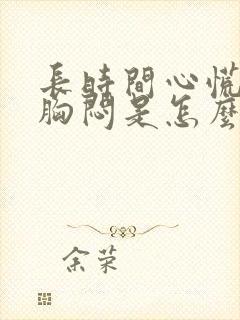 長時間心慌
胸悶是怎麼
余荣